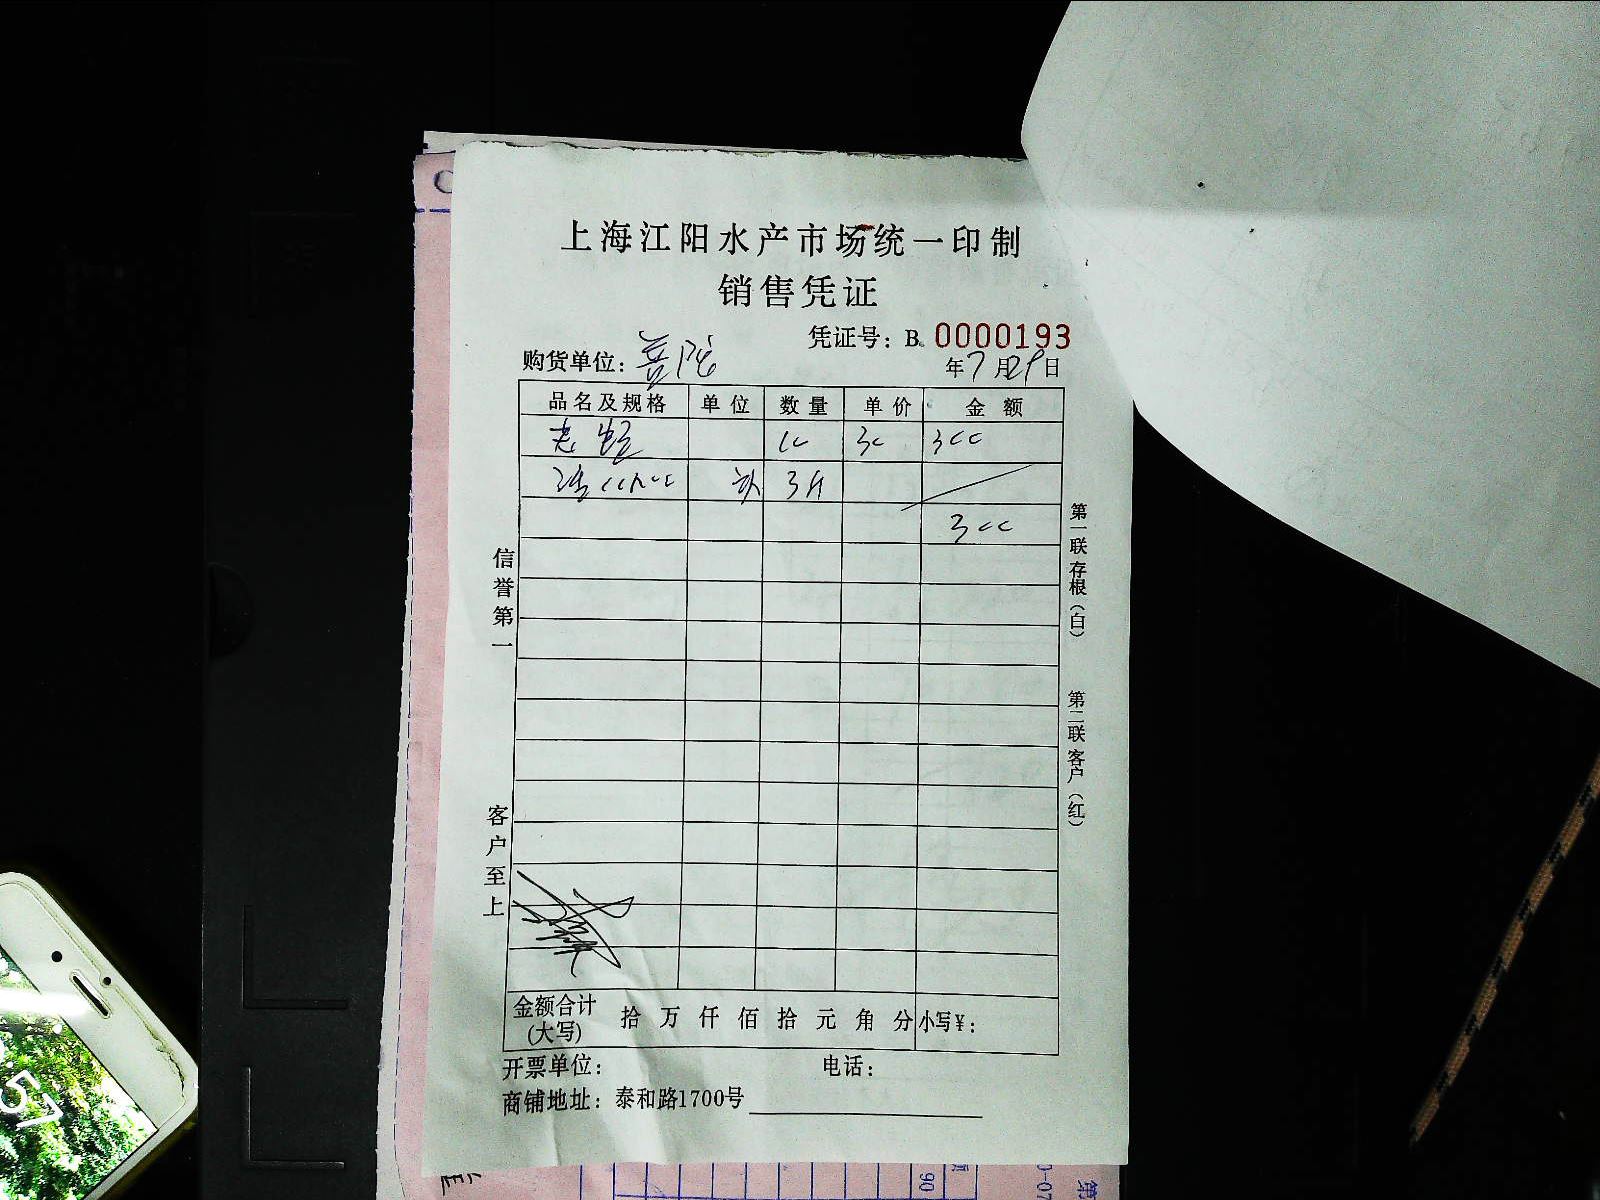 上海江阳水产市场统一印制
销售凭证
凭证号：B. 0000193
购货单位：普陀 年7月29日
品名及规格 单位 数量 单价 金额
老 10 30 300
3斤
300
信誉第一
客户至上
第一联存根（白）
第二联客户（红）
金额合计(大写) 拾 万 仟 佰 拾 元 角 分 小写¥：
开票单位： 电话：
商铺地址：泰和路1700号
:57
90
0-07
第